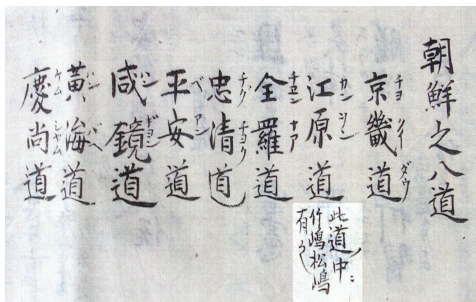 朝鮮之八道
京畿道
江原道
此道中ニ
竹嶋松嶋
有之
全羅道
忠清道
平安道
咸鏡道
黄海道
慶尚道